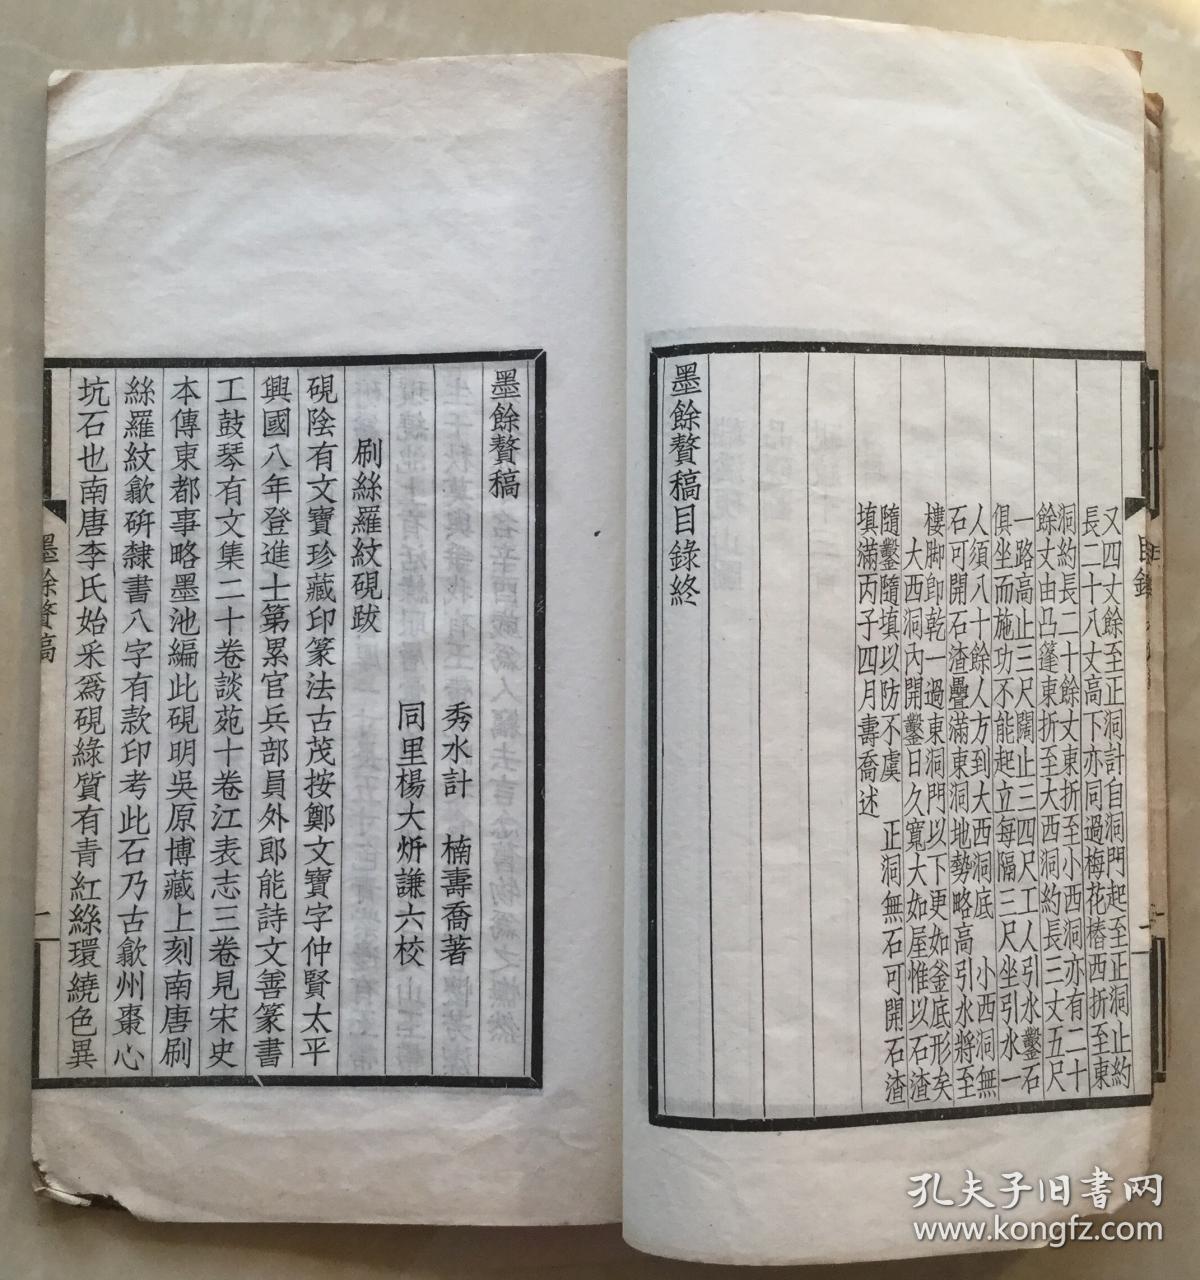 又四丈餘至正洞計自洞門起至正洞止約
長二十八丈高下亦同過梅花樁西折至東
洞約長二十餘丈東折至小西洞亦有二十
餘丈由凸篷東折至大西洞約長三丈五尺
一路高止三尺闊止三四尺工人引水鑿石
俱坐而施功不能起立每隔三尺坐引水一
人須八十餘人方到大西洞底　小西洞無
石可開石渣疊滿東洞地勢略高引水將至
樓脚卽乾一過東洞門以下更如釜底形矣
大西洞內開鑿日久寬大如屋惟以石渣
隨鑿隨填以防不虞　正洞無石可開石渣
填滿丙子四月壽喬述
墨餘贅稿目錄終
目錄
墨餘贅稿
秀水計　楠壽喬著
同里楊大炘謙六校
刷絲羅紋硯跋
硯陰有文寶珍藏印篆法古茂按鄭文寶字仲賢太平
興國八年登進士第累官兵部員外郎能詩文善篆書
工鼓琴有文集二十卷談苑十卷江表志三卷見宋史
本傳東都事略墨池編此硯明吳原博藏上刻南唐刷
絲羅紋歙硏隸書八字有款印考此石乃古歙州棗心
坑石也南唐李氏始采爲硯綠質有青紅絲環繞色異
墨餘贅稿
一
孔夫子旧书网
www.kongfz.com